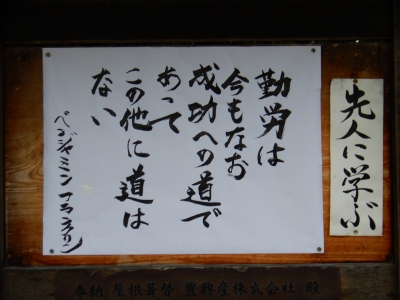 先人に学ぶ
勤労は
今もなお
成功への道で
あって
この他に道は
ない
べンジャミン フランクリン
奉納 屋根葺替 豊興産株式会社 殿